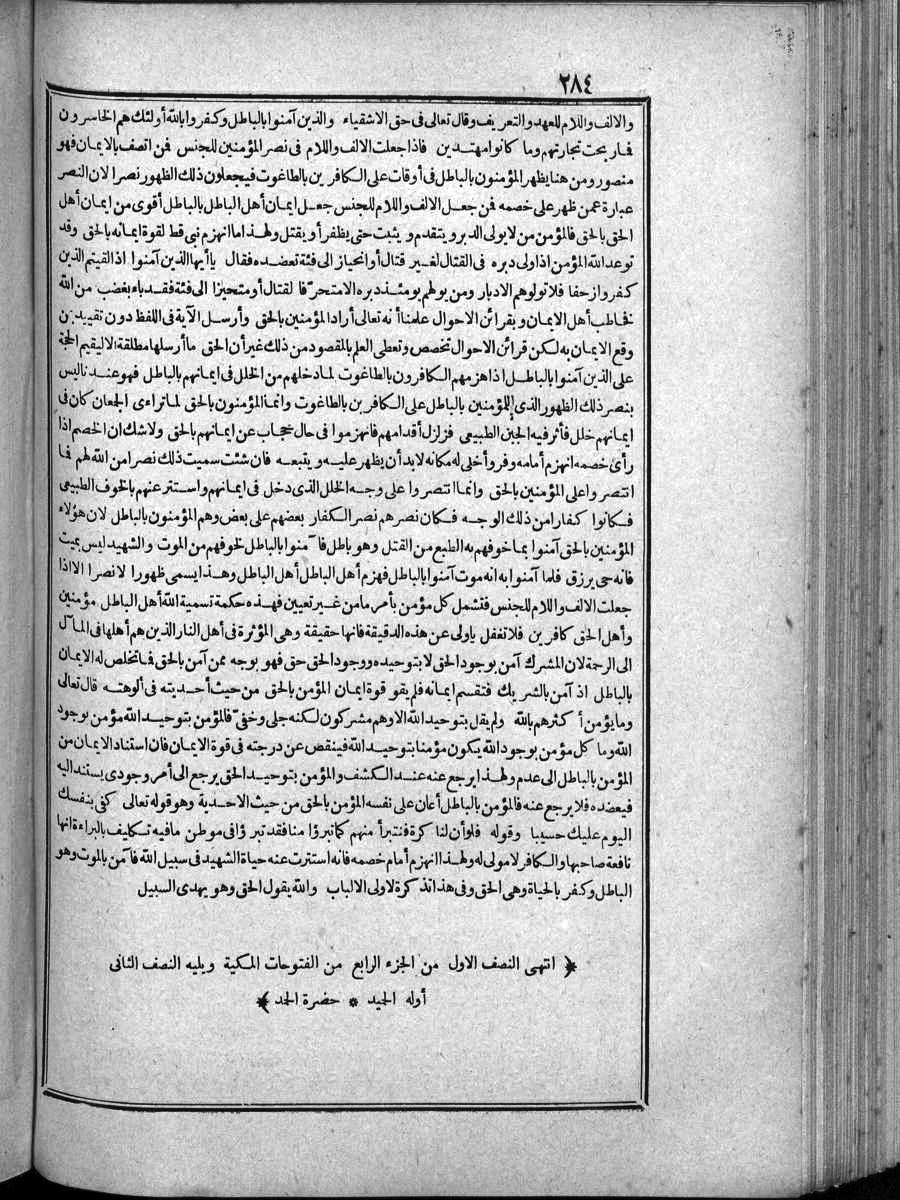 ٢٨٤
والالف واللام للعهد والتعريف وقال تعالى فى حق الاشقياء والذين آمنوا بالباطل وكفروا بالله أولئك هم الخاسرون
فما ربحت تجارتهم وما كانوا مهتدين فاذا جعلت الالف واللام فى نصر المؤمنين للجنس فمن اتصف بالايمان فهو
منصور ومن هنا يظهر المؤمنون بالباطل فى أوقات على الكافرين بالطاغوت فيجعلون ذلك الظهور نصرا لان النصر
عبارة عمن ظهر على خصمه فمن جعل الالف واللام للجنس جعل ايمان أهل الباطل بالباطل أقوى من ايمان أهل
الحق بالحق فالمؤمن من لا يولى الدبر ويتقدم ويثبت حتى يظفر أو يقتل ولهذا ما انهزم نبى قط لقوة ايمانه بالحق وقد
توعد الله المؤمن اذا ولى دبره فى القتال لغير قتال أو انحياز الى فئة تعضده فقال يا أيها الذين آمنوا اذا لقيتم الذين
كفروا زحفا فلا تولوهم الادبار ومن يولهم يومئذ دبره الا متحرّفا لقتال أو متحيزا الى فئة فقد باء بغضب من الله
فخاطب أهل الايمان وبقرائن الاحوال علمنا أنه تعالى أراد المؤمنين بالحق وأرسل الآية فى اللفظ دون تقييد بمن
وقع الايمان به لكن قرائن الاحوال تخصص وتعطى العلم بالمقصود من ذلك غير أن الحق ما أرسلها مطلقة الا ليقيم الحجة
على الذين آمنوا بالباطل اذا هزمهم الكافرون بالطاغوت لما دخلهم من الخلل فى ايمانهم بالباطل فهو عندنا ليس
بنصر ذلك الظهور الذى للمؤمنين بالباطل على الكافرين بالطاغوت وانما المؤمنون بالحق لما تراءى الجمعان كان فى
ايمانهم خلل فأثر فيه الجبن الطبيعى فزلزل أقدامهم فانهزموا فى حال حجاب عن ايمانهم بالحق ولا شك ان الخصم اذا
رأى خصمه انهزم أمامه وفر وأخلى له مكانه لابد أن يظهر عليه ويتبعه فان شئت سميت ذلك نصرا من الله لهم فما
انتصروا على المؤمنين بالحق وانما انتصروا على وجه الخلل الذى دخل فى ايمانهم واستتر عنهم بالخوف الطبيعى
فكانوا كفارا من ذلك الوجه فكان نصرهم نصر الكفار بعضهم على بعض وهم المؤمنون بالباطل لان هؤلاء
المؤمنين بالحق آمنوا بما خوفهم به الطبع من القتل وهو باطل فآمنوا بالباطل لخوفهم من الموت والشهيد ليس بميت
فانه حى يرزق فلما آمنوا به انه موت آمنوا بالباطل فهزم أهل الباطل أهل الباطل وهذا يسمى ظهورا لا نصرا الا اذا
جعلت الالف واللام للجنس فتشمل كل مؤمن بأمر ما من غير تعيين فهذه حكمة تسمية الله أهل الباطل مؤمنين
وأهل الحق كافرين فلا تغفل يا ولى عن هذه الدقيقة فانها حقيقة وهى المؤثرة فى أهل النار الذين هم أهلها فى المآل
الى الرحمة لان المشرك آمن بوجود الحق لا بتوحيده ووجود الحق حق فهو بوجه ممن آمن بالحق فما تخلص له الايمان
بالباطل اذ آمن بالشريك فتقسم ايمانه فلم يقو قوة ايمان المؤمن بالحق من حيث أحديته فى ألوهته قال تعالى
وما يؤمن أكثرهم بالله ولم يقل بتوحيد الله الا وهم مشركون لكنه جلى وخفىّ فالمؤمن بتوحيد الله مؤمن بوجود
الله وما كل مؤمن بوجود الله يكون مؤمنا بتوحيد الله فينقص عن درجته فى قوة الايمان فان استناد الايمان من
المؤمن بالباطل الى عدم ولهذا يرجع عنه عند الكشف والمؤمن بتوحيد الحق يرجع الى أمر وجودى يستند اليه
فيعضده فلا يرجع عنه فالمؤمن بالباطل أعان على نفسه المؤمن بالحق من حيث الاحدية وهو قوله تعالى كفى بنفسك
اليوم عليك حسيبا وقوله فلو أن لنا كرة فنتبرأ منهم كما تبرؤا منا فقد تبرؤا فى موطن ما فيه تكليف بالبراءة انها
نافعة صاحبها والكافر لا مولى له ولهذا انهزم أمام خصمه فانه استترت عنه حياة الشهيد فى سبيل الله فآمن بالموت وهو
الباطل وكفر بالحياة وهى الحق وفى هذا تذكرة لاولى الالباب والله يقول الحق وهو يهدى السبيل
﴿ انتهى النصف الاول من الجزء الرابع من الفتوحات المكية ويليه النصف الثانى
أوله الحميد * حضرة الحمد ﴾